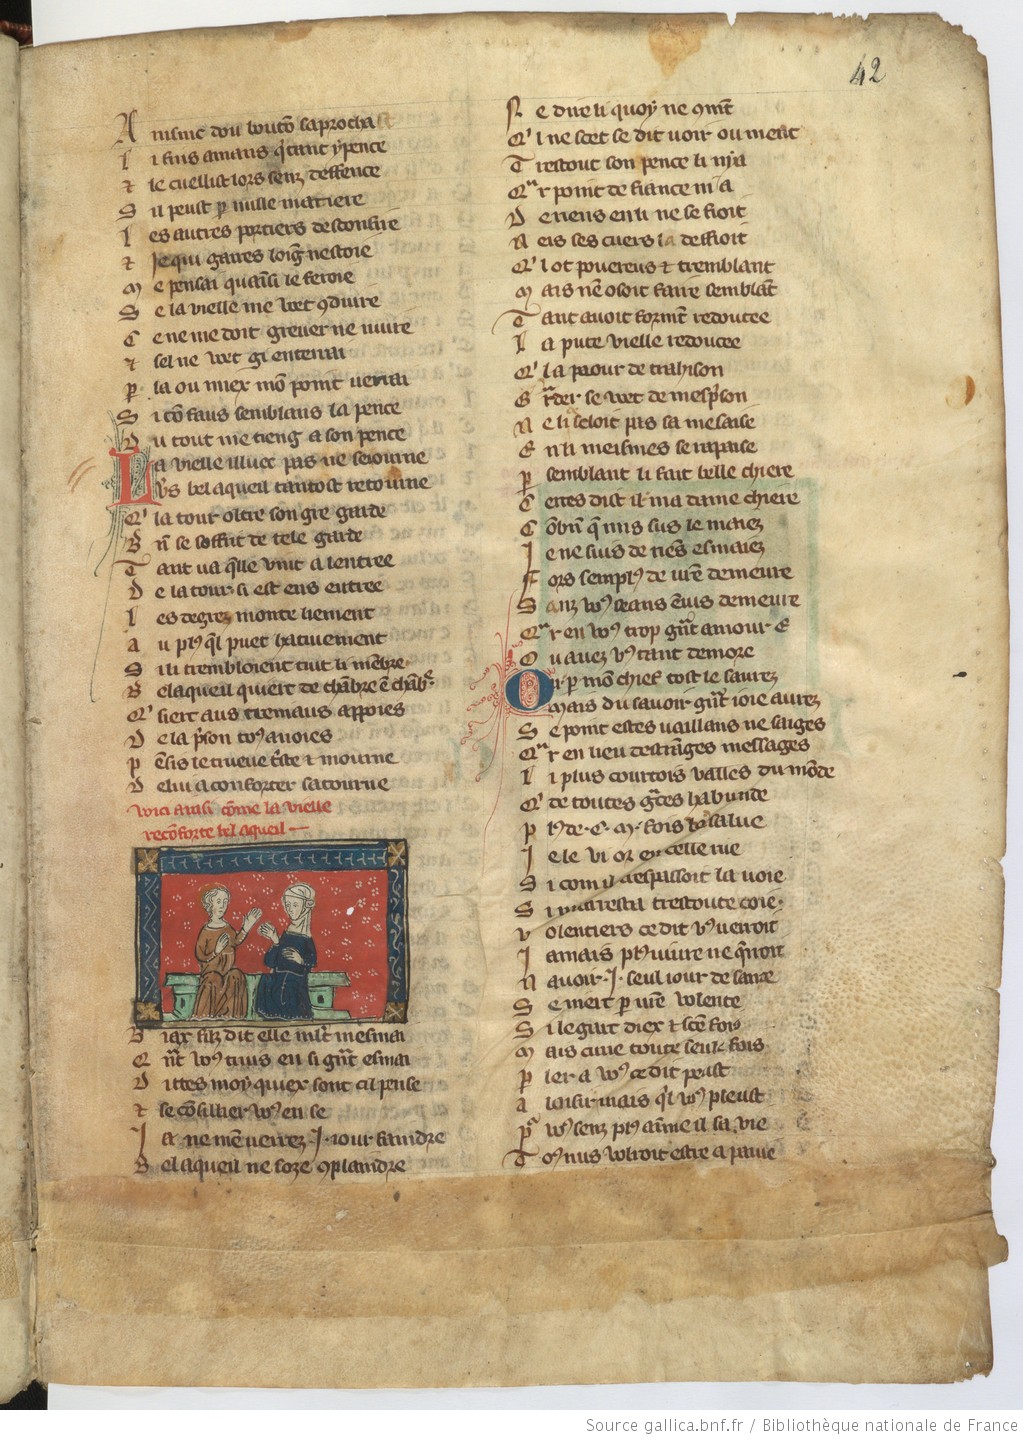 42
A insinc dou bouton saprocha
L i fins amans q' tant y pence
⁊ le cuellist lors senz deffence
S il peust p nulle matiere
L es autres portiers desconfire
⁊ Je qui gaires loig nestoie
M e pensai quansi le feroie
S e la vielle me vuet 9duire
C e ne me doit grever ne nuire
⁊ sel ne vuet gi enterrai
P la ou miex mon point verrai
S i con faus semblans la pence
D u tout me tieng a son pence
L a vielle illuec pas ne seiourne
V's bel aqueil tantost retourne
Q' la tour oltre son gre garde
B n se soffrit de tele garde
T ant va q'lle vint a lentree
D e la tour si est ens entree
L es degrez monte liement
A u pl9 q'l puet hativement
S i li trembloient tuit li menbre
B elaqueil quiert de chanbre en chanb'
Q' siert aus cremaus appoies
D e la p'son to9 anoies
P ensis le trueve t'ste ⁊ mourne
D e lui a conforter satourne
vici ausi come la vielle
reconforte bel aqueil
B iax filz dit elle mlt mesmai
Q nt vo9 truis en si gnt esmai
D ittes moy quiex sont cil pense
⁊ se consillier vo9 en se
J a ne men verrez .J. iour faindre
B elaqueil ne soze 9plaindre
N e dire li quoy ne 9mt
Q' l ne scet se dit voir ou ment
T restout son pence li nya
Q'r point de fiance ni a
D e riens en li ne se fioit
N eis ses cuers la deffioit
Q' l ot povereus ⁊ tremblant
M ais nen osoit faire semblat
T ant avoit formt redoutee
L a pute vielle redoutee
Q' la paour de trahison
G rder se vuet de mesp'son
N e li seloit pas sa mesaise
E n li meismes se rapaise
P semblant li fait belle chiere
C ertes dist il ma dame chiere
C obn q mis sus le maiez
J e ne suis de riens esmaiez
F ors sempl9 de vre demeure
S anz vo9 ceans envis demeure
Q'r en vo9 trop gnt amour e
O u avez v9 tant demore
O u p mon chief tost le saurez
M ais du savoir gnt ioie aurez
S e point estes vaillans ne saiges
Q'r en lieu destranges messages
L i plus courtois valles du monde
Q' de toutes g'ces habunde
P l9 de .C. M. fois vo9 salue
J e le vi or en celle rue
S i com il trespassoit la voie
S i marresta trestoute coie
V olentiers ce dit v9 verroit
J amais pl9 vivre ne q'rroit
N avoir .J. seul iour de sante
S e mert p vre volente
S i le gart diex ⁊ sce fois
M ais cune toute seule fois
P ler a vo9 ce dit peust
A loisir mais q'l vo9 pleust
P' vo9 senz pl9 aime il sa vie
T o9 nus voldroit estre a pavie
Source gallica.bnf.fr / Bibliothèque nationale de France